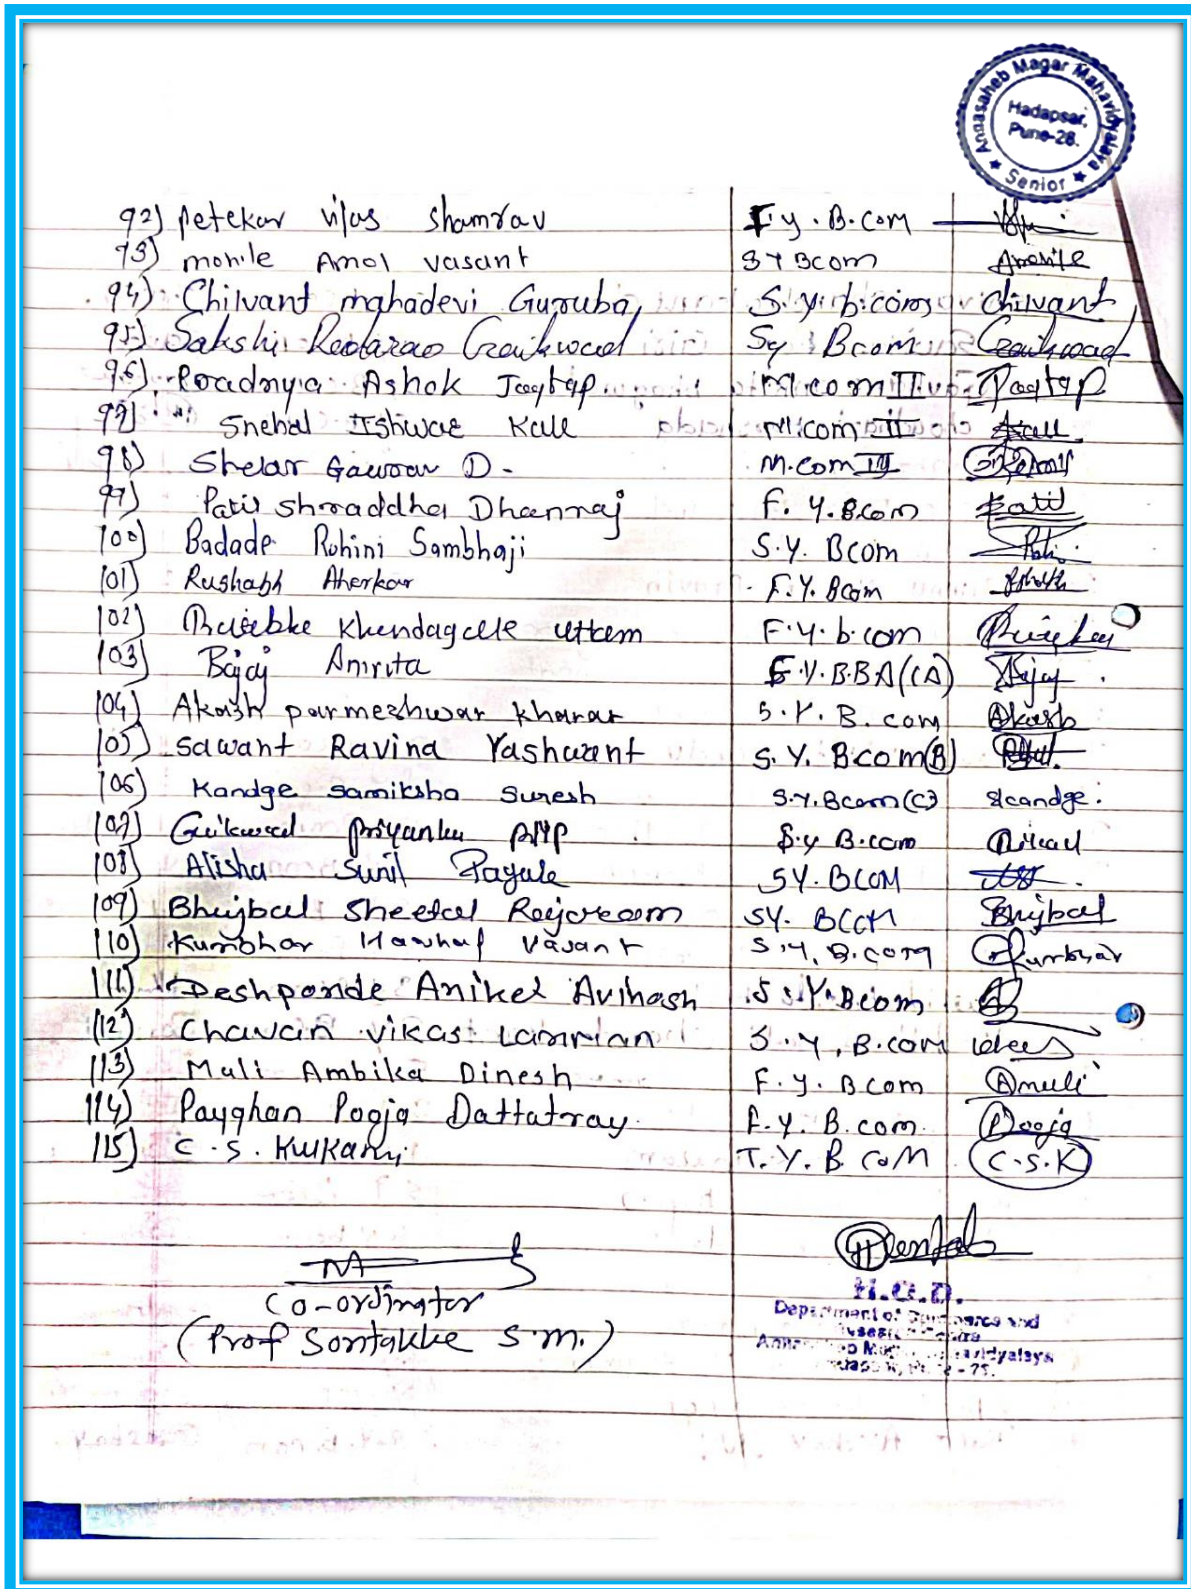 Annasaheb Magar Mahavidyalaya
Hadapsar,
Pune-28.
★ Senior ★
92) Petekar vilas shamrav F.y.B.com
93) mohile Amol vasant SYBcom Amohile
94) Chilvant mahadevi Guruba S.y.b.com Chilvant
95) Sakshi Gaikwad Sy Bcom Gaikwad
96) Pradnya Ashok Jagtap M.com II Jagtap
97) Snehal Ishwar Kale M.com II
98) Shelar Gaurav D. M.com
99) Patil Shraddha Dhanraj F.Y.B.com Patil
100) Badade Rohini Sambhaji S.Y. Bcom
101) Rushabh Aherkar F.Y. Bcom
102) F.y.b.com
103) Bajaj Amruta F.Y.B.BA(CA) Bajaj
104) Akash parmeshwar kharat S.Y.B.com Akash
105) Sawant Ravina Yashwant S.Y. Bcom(B)
106) Kandge Samiksha Suresh S.Y.Bcom(C) Skandge.
107) Gaikwad Priyanka S.y B.com
108) Alisha Sunil Pagale SY.BCOM
109) Bhujbal Sheetal Rajaram SY. BCOM Bhujbal
110) Kumbhar vasant S.Y.B.com Kumbhar
111) Deshpande Aniket Avinash S.Y.Bcom
112) Chavan vikas S.Y.B.com
113) Mali Ambika Dinesh F.y.Bcom Amali
114) Payghan Pooja Dattatray F.Y.B.com. Pooja
115) C.S. Kulkarni T.Y.B.COM C.S.K
Co-ordinator
(Prof Sontakke S.M.)
H.O.D.
Department of Commerce and
Research Centre
Annasaheb Magar Mahavidyalaya